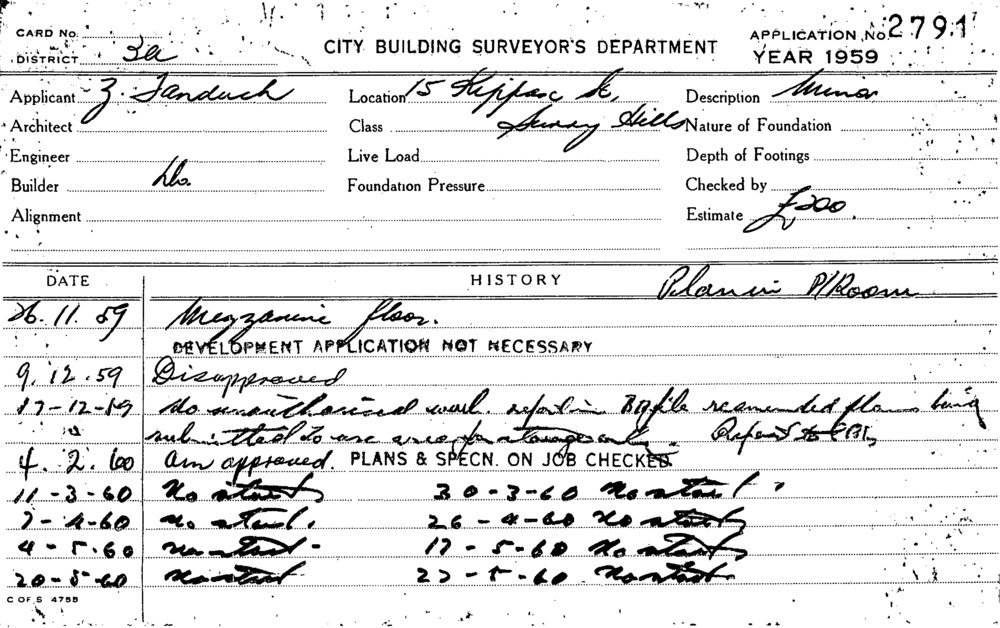 CARD No.
DISTRICT 3a
CITY BUILDING SURVEYOR'S DEPARTMENT
APPLICATION No. 2791
YEAR 1959
Applicant Z. Tanduch
Location 15 Kippax St,
Surry Hills
Description Minor
Architect
Class
Nature of Foundation
Engineer
Live Load
Depth of Footings
Builder Do.
Foundation Pressure
Checked by
Alignment
Estimate £200.
DATE
HISTORY
Plan in P/Room
26.11.59 Mezzanine floor.
DEVELOPMENT APPLICATION NOT NECESSARY
9.12.59 Disapproved
17-12-59 No unauthorised work. report in BA file re amended plans being
submitted to use area for storage only.
4.2.60 Am approved. PLANS & SPECN. ON JOB CHECKED.
11-3-60 No start 30-3-60 No start
7-4-60 No start. 26-4-60 No start
4-5-60 No start- 17-5-60 No start
20-5-60 No start 27-5-60 No start.
C OF S 4755